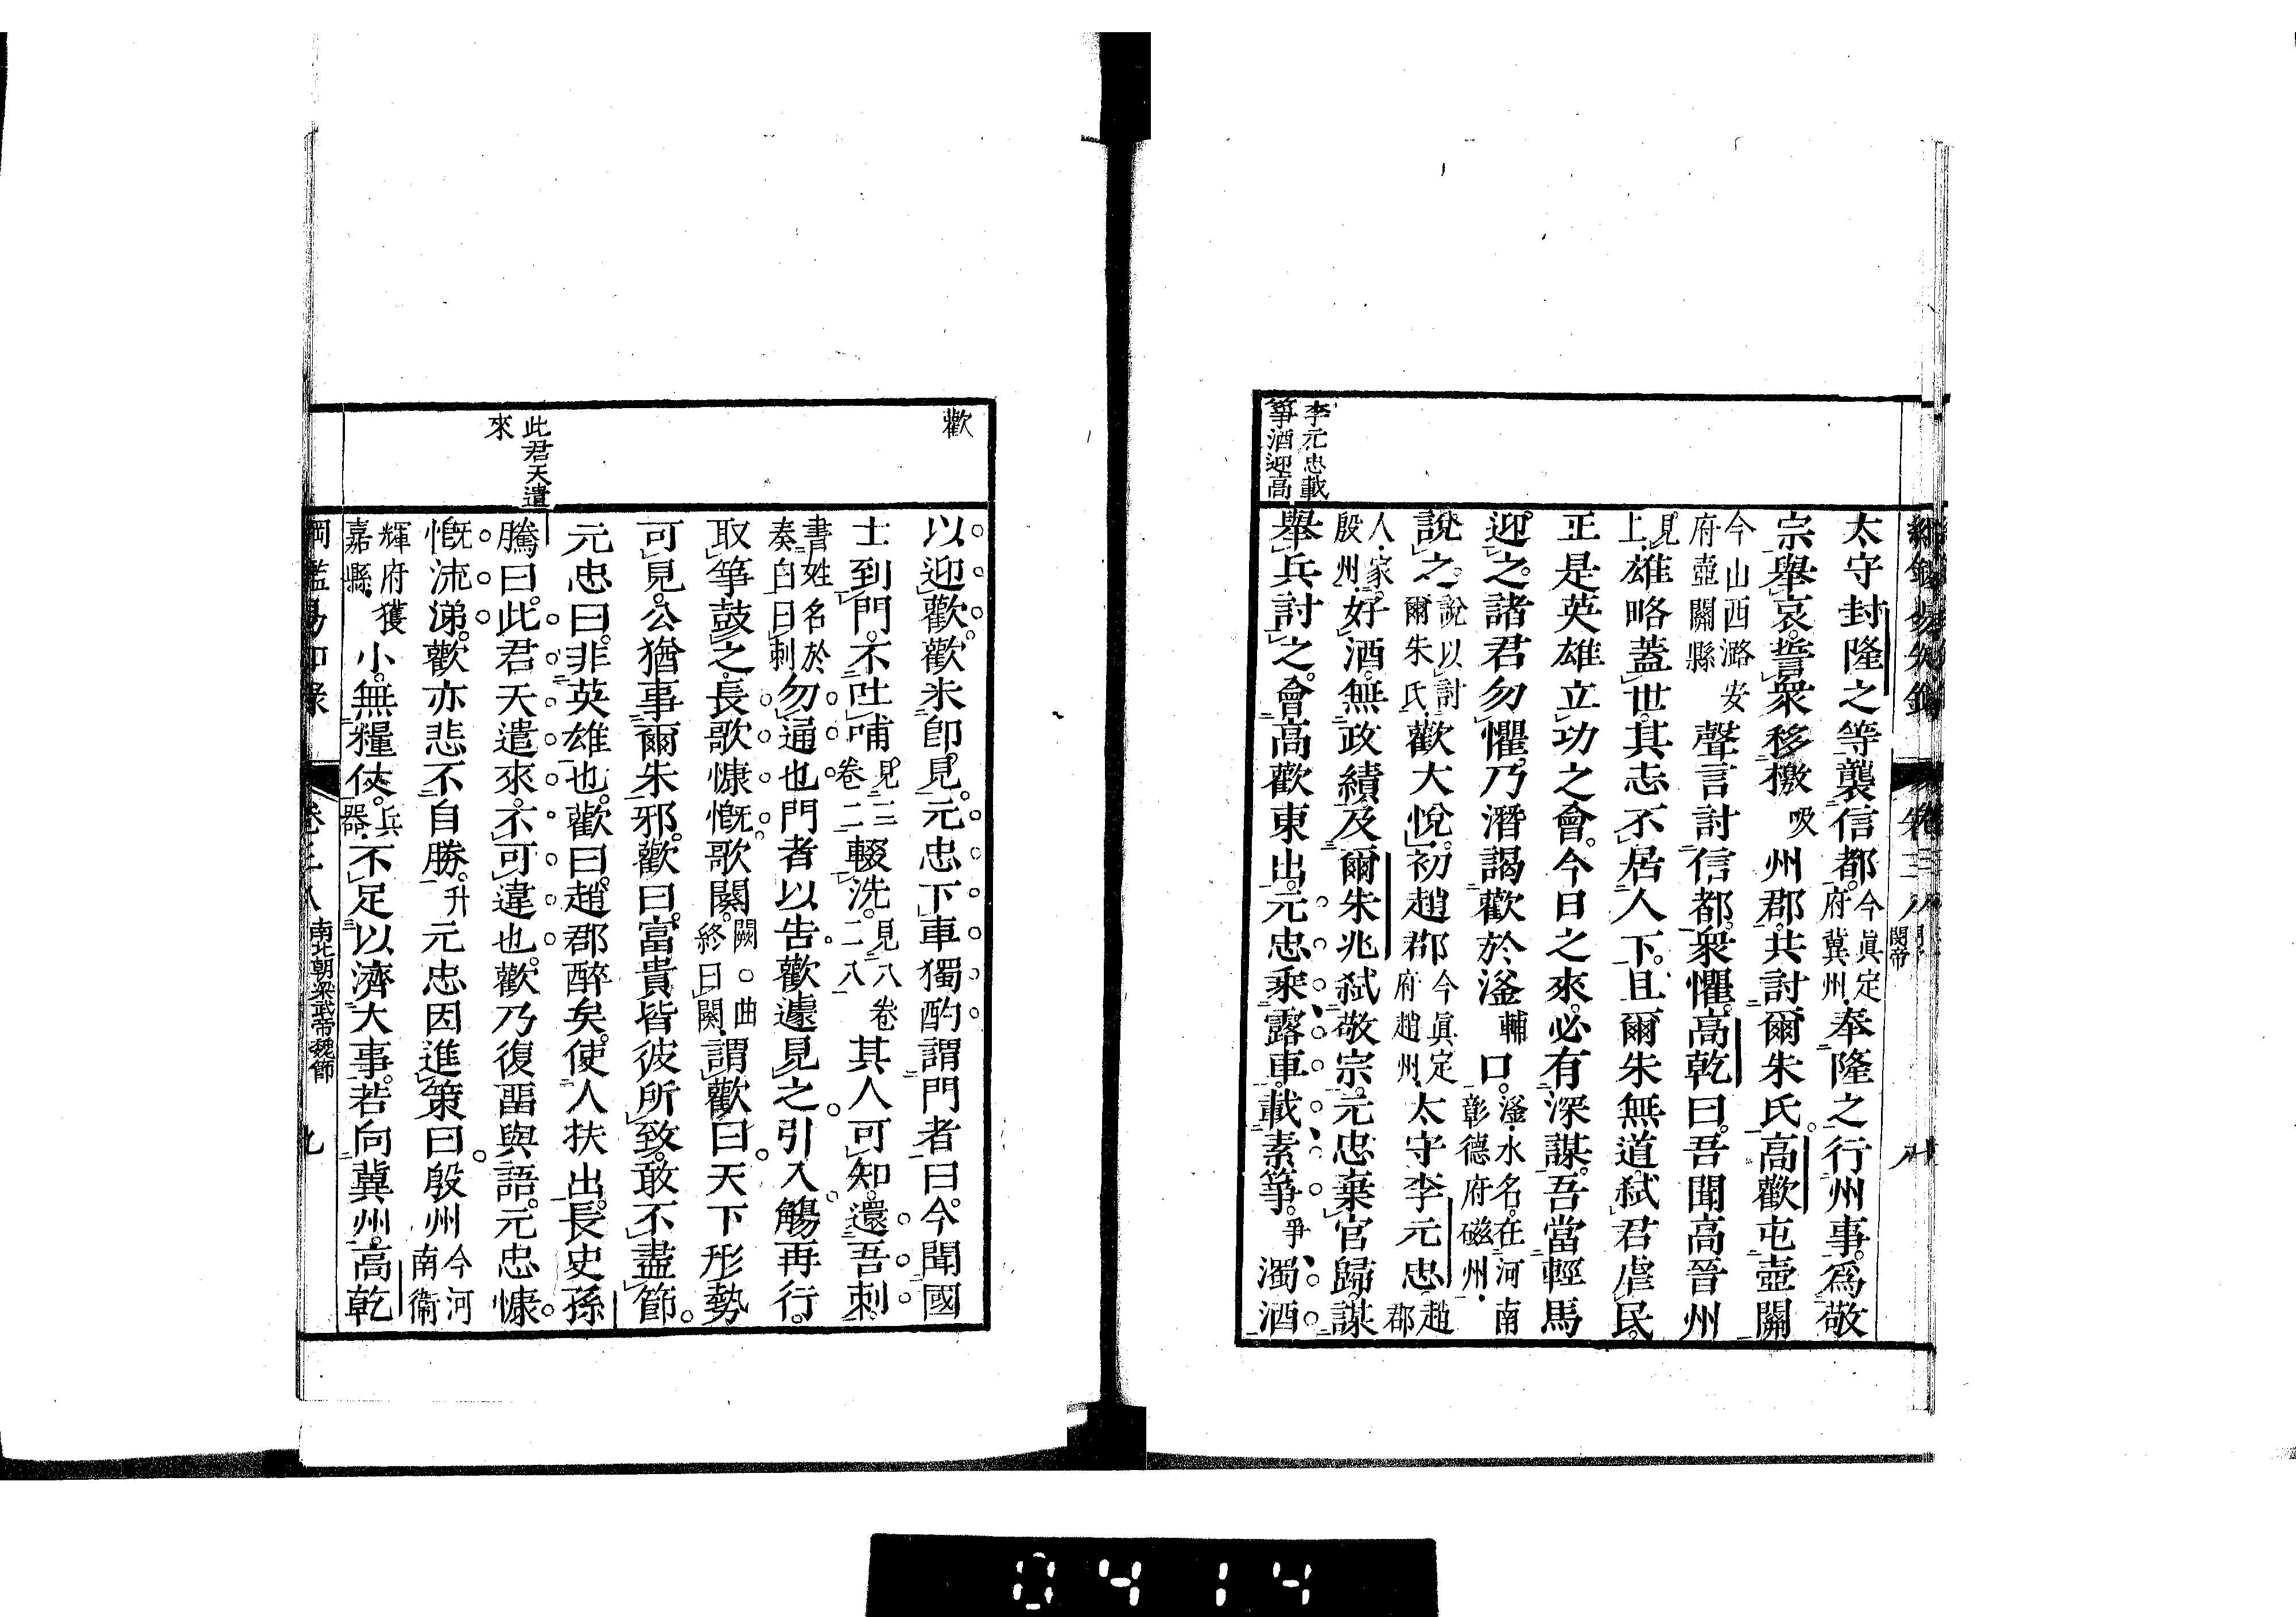 太守封隆之等襲信都。今眞定府冀州。奉隆之行州事。爲敬
宗舉哀。誓衆移檄吸州郡。共討爾朱氏。高歡屯壺關
今山西潞安府壺關縣聲言討信都。衆懼。高乾曰。吾聞高晉州
見上。雄略蓋世。其志不居人下。且爾朱無道。弑君虐民。
正是英雄立功之會。今日之來。必有深謀。吾當輕馬
迎之。諸君勿懼。乃潛謁歡於滏輔口。滏水名。在河南彰德府磁州。
說之。說以討爾朱氏。歡大悅。初趙郡今眞定府趙州。太守李元忠趙郡
人。家殷州。好酒。無政績。及爾朱兆弑敬宗。元忠棄官歸。謀
舉兵討之。會高歡東出。元忠乘露車。載素箏。爭濁酒
李元忠載
箏酒迎高
閔帝
歡
以迎歡。歡未卽見。元忠下車獨酌。謂門者曰。今聞國
士到門。不吐哺見二卷二輟洗。見八卷二八其人可知。還吾刺。
書姓名於奏白曰刺勿通也。門者以告。歡遽見之。引入觴再行。
取箏鼓之。長歌慷慨。歌闋。闕○曲終曰闋。謂歡曰。天下形勢
可見。公猶事爾朱邪。歡曰。富貴皆彼所致。敢不盡節。
元忠曰。非英雄也。歡曰。趙郡醉矣。使人扶出。長史孫
騰曰。此君天遣來。不可違也。歡乃復畱與語。元忠慷
慨流涕。歡亦悲不自勝。升元忠因進策曰。殷州今河南衞
輝府獲嘉縣。小。無糧仗。兵器。不足以濟大事。若向冀州。高乾
此君天遣
來
綱鑑易知錄
卷三八
南北朝梁武帝魏節
九